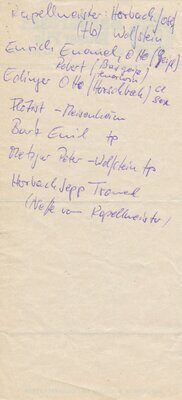 Kapellmeister: Horbach, Josef
(Tb) Wolfstein
Emrich Emanuel, Otto (Geige)
Robert (Bassgeige
Edinger Otto (Horschbach) cl
sax
Probst - Meisenheim
Bark Emil tp
Metzger Peter - Wolfstein tp
Horbach Sepp Tromel
(Neffe vom Kapellmeister)